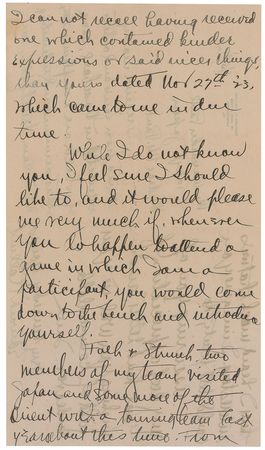 I can not recall having received
one which contained kinder
expressions or said nicer things,
than yours dated Nov 27th 23,
which came to me in due
time.
While I do not know
you, I feel sure I should
like to, and it would please
me very much if, whenever
you to happen to attend a
game in which I am a
participant, you would come
down to the bench and introduce
yourself.
Hoch & Strunk two
members of my team visited
Japan and some more of the
Orient with a touring team last
year about this time. From